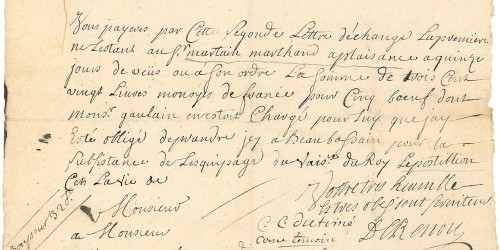 Vous payeres par Cette Segonde Lettre déchange La premiere
ne Lestant au Sr. martain marchand a plaisance a quinze
jours de veüs ou a Son ordre La Somme de trois Cent
vingt Liuves monoye de france pour Cinq boeuf dont
monsr. gaulain en estoit Chargé pour Luy que jay
Esté obligé de prandre jcy a Beaubassain pour la
Subsistance de Lesquipage du Vaise. du Roy Le postillion
A Monsieur
Monsieur
Vostre tres humble
tres obeissent serviteur